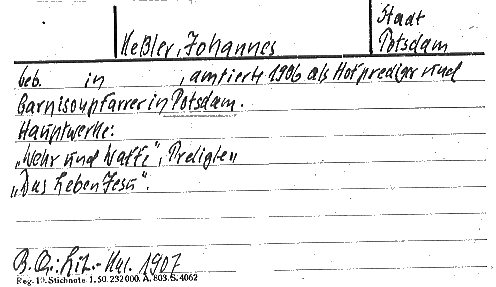 Stadt
Keßler, Johannes Potsdam
geb. in , amtierte 1906 als Hofprediger und
Garnisonpfarrer in Potsdam.
Hauptwerke:
„Wehr und Waffe", Predigten
„Das Leben Jesu".
B. Qu.: Lit.-Kal. 1907
Reg. 10. Stichnote 1. 50. 232000. A. 803. S. 4062